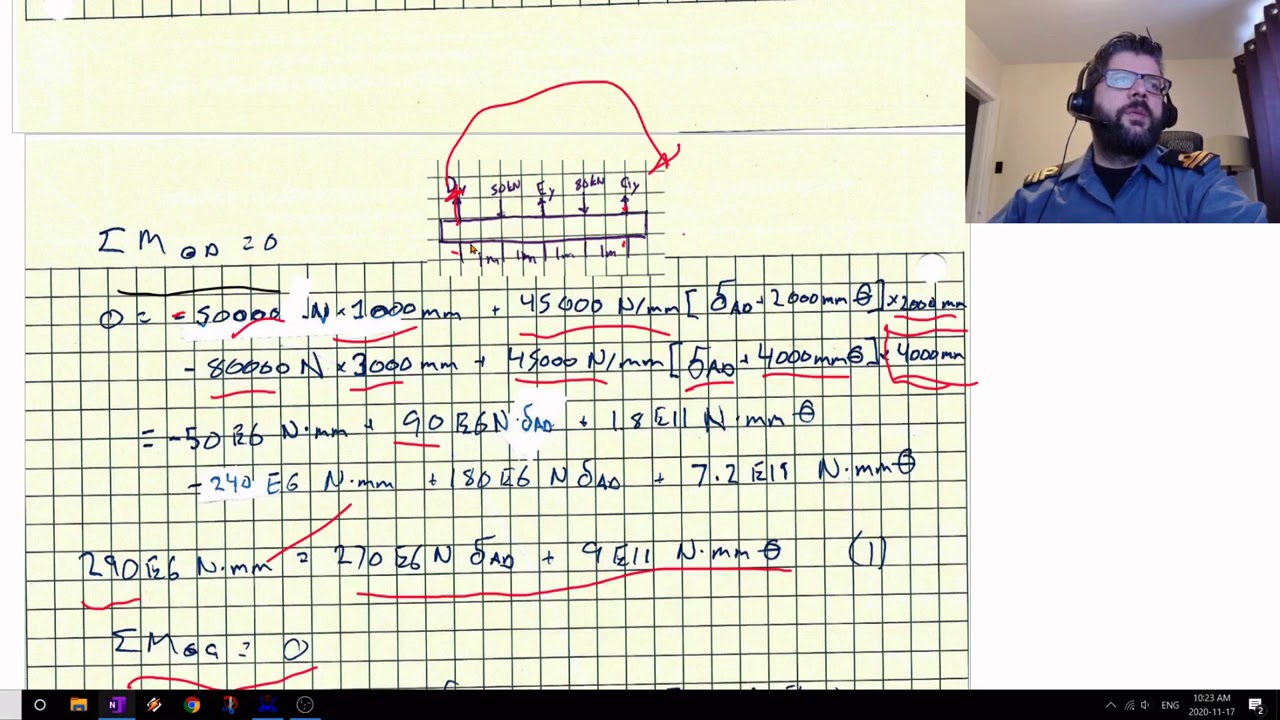 Dy 50kN Ey 80kN Gy
1m 1m 1m 1m
ΣM@D = 0
0 = -50000 N × 1000 mm + 45000 N/mm [δAD + 2000mm θ] × 2000 mm
- 80000 N × 3000 mm + 45000 N/mm [δAD + 4000mm θ] × 4000 mm
= -50 E6 N·mm + 90 E6 N·δAD + 1.8 E11 N·mm θ
- 240 E6 N·mm + 180 E6 N δAD + 7.2 E11 N·mm θ
290 E6 N·mm = 270 E6 N δAD + 9 E11 N·mm θ (1)
ΣM@G = 0
ENG
10:23 AM
2020-11-17
2